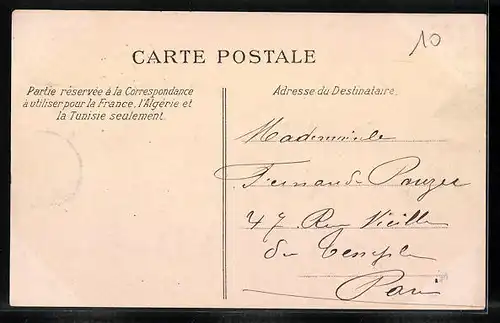 10
CARTE POSTALE
Partie réservée à la Correspondance
à utiliser pour la France, l'Algérie et
la Tunisie seulement.
Adresse du Destinataire.
Mademoiselle
Fernande
47 Rue Vieille
du Temple
Paris